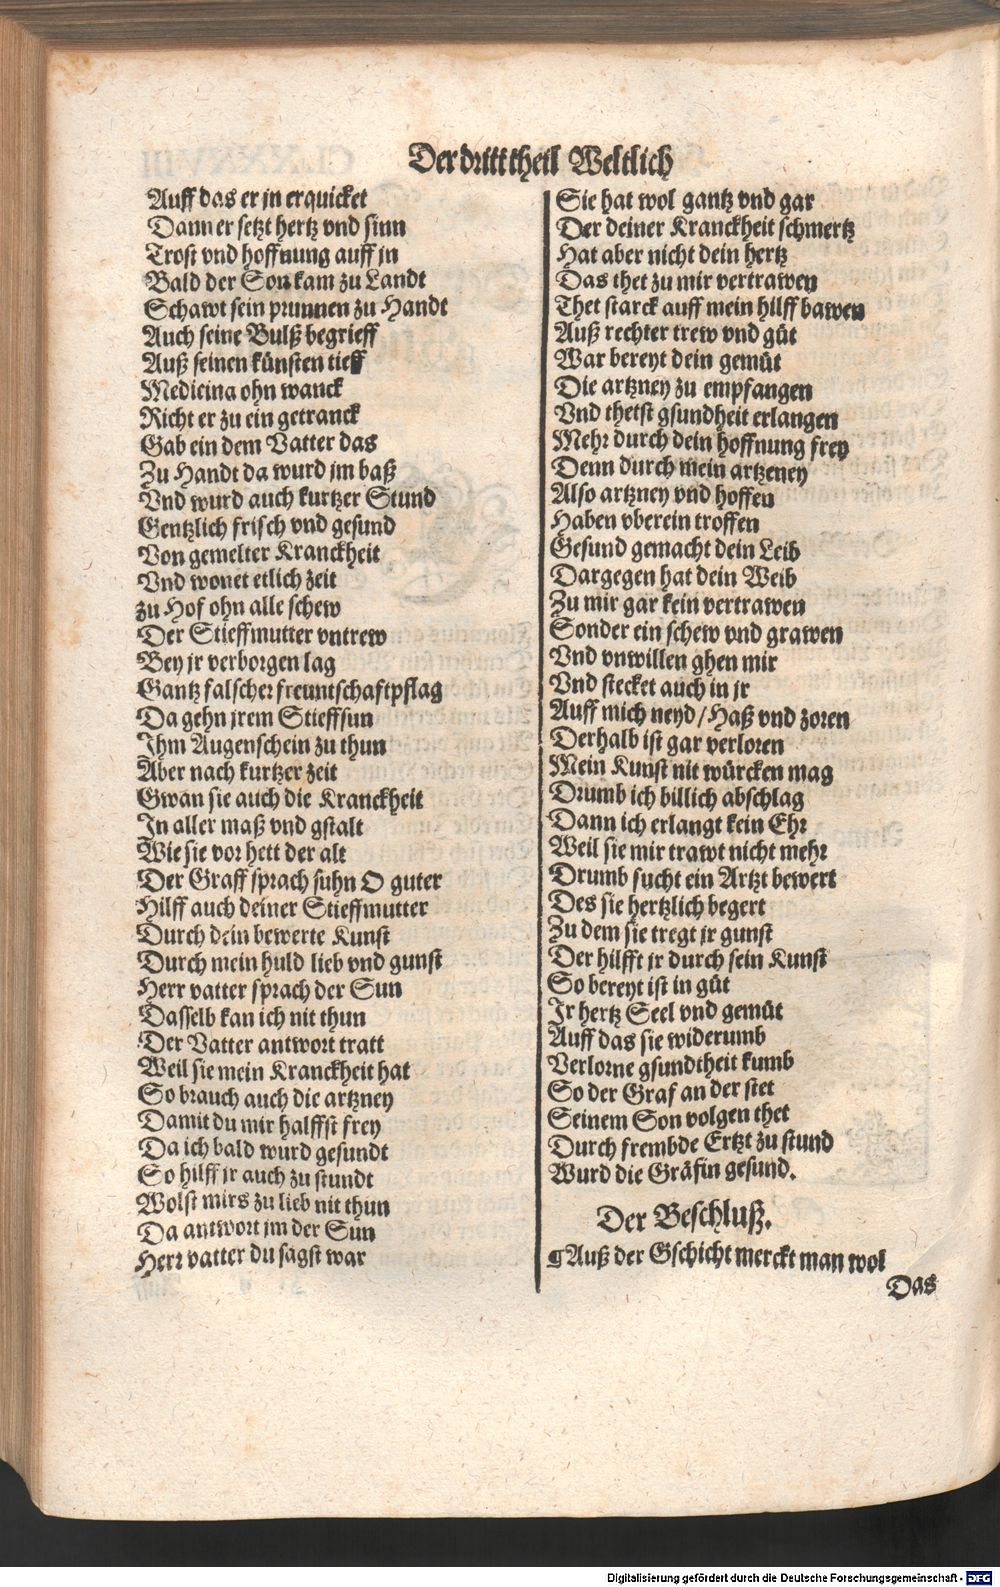 Der dritt theil Weltlich
Auff das er jn erquicket
Dann er setzt hertz vnd sinn
Trost vnd hoffnung auff jn
Bald der Son kam zu Landt
Schawt sein prunnen zu Handt
Auch seine Bulß begrieff
Auß seinen künsten tieff
Medicina ohn wanck
Richt er zu ein getranck
Gab ein dem Vatter das
Zu Handt da wurd jm baß
Vnd wurd auch kurtzer Stund
Gentzlich frisch vnd gesund
Von gemelter Kranckheit
Vnd wonet etlich zeit
zu Hof ohn alle schew
Der Stieffmutter vntrew
Bey jr verborgen lag
Gantz falscher freuntschaft pflag
Da gehn jrem Stieffsun
Ihm Augenschein zu thun
Aber nach kurtzer zeit
Gwan sie auch die Kranckheit
In aller maß vnd gstalt
Wie sie vor hett der alt
Der Graff sprach suhn O guter
Hilff auch deiner Stieffmutter
Durch dein bewerte Kunst
Durch mein huld lieb vnd gunst
Herr vatter sprach der Sun
Dasselb kan ich nit thun
Der Vatter antwort tratt
Weil sie mein Kranckheit hat
So brauch auch die artzney
Damit du mir halffst frey
Da ich bald wurd gesundt
So hilff jr auch zu stundt
Wolst mirs zu lieb nit thun
Da antwort jm der Sun
Herr vatter du sagst war
Sie hat wol gantz vnd gar
Der deiner Kranckheit schmertz
Hat aber nicht dein hertz
Das thet zu mir vertrawen
Thet starck auff mein hilff bawen
Auß rechter trew vnd güt
War bereyt dein gemüt
Die artzney zu empfangen
Vnd thetst gsundheit erlangen
Mehr durch dein hoffnung frey
Denn durch mein artzeney
Also artzney vnd hoffen
Haben vberein troffen
Gesund gemacht dein Leib
Dargegen hat dein Weib
Zu mir gar kein vertrawen
Sonder ein schew vnd grawen
Vnd vnwillen ghen mir
Vnd stecket auch in jr
Auff mich neyd / Haß vnd zoren
Derhalb ist gar verloren
Mein Kunst nit würcken mag
Drumb ich billich abschlag
Dann ich erlangt kein Ehr
Weil sie mir trawt nicht mehr
Drumb sucht ein Artzt bewert
Des sie hertzlich begert
Zu dem sie tregt jr gunst
Der hilfft jr durch sein Kunst
So bereyt ist in güt
Ir hertz Seel vnd gemüt
Auff das sie widerumb
Verlorne gsundtheit kumb
So der Graf an der stet
Seinem Son volgen thet
Durch frembde Ertzt zu stund
Wurd die Gräfin gesund.
Der Beschluß.
¶Auß der Gschicht merckt man wol
Das
Digitalisierung gefördert durch die Deutsche Forschungsgemeinschaft - DFG